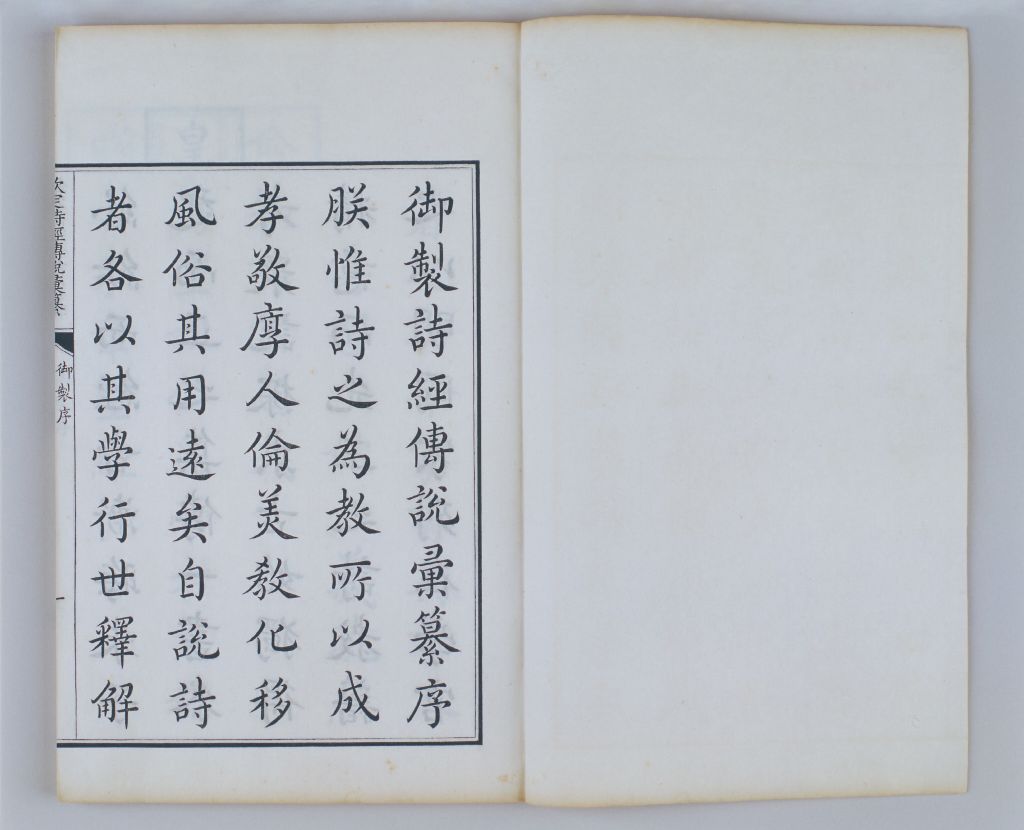 御製詩經傳說彙纂序
朕惟詩之為教所以成
孝敬厚人倫美教化移
風俗其用遠矣自說詩
者各以其學行世釋解
欽定詩經傳說彙纂
御製序
一